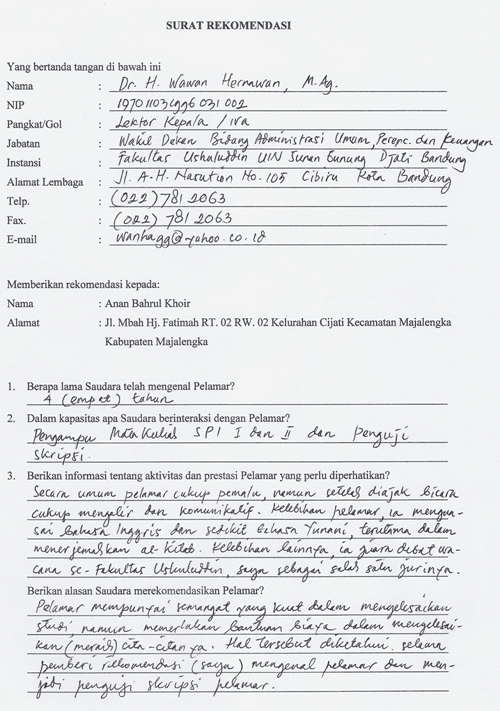 SURAT REKOMENDASI
Yang bertanda tangan di bawah ini
Nama : Dr. H. Wawan Hernawan, M.Ag.
NIP : 197011031996031002
Pangkat/Gol : Lektor Kepala / IVa
Jabatan : Wakil Dekan Bidang Administrasi Umum, Perenc. dan Keuangan
Instansi : Fakultas Ushuluddin UIN Sunan Gunung Djati Bandung
Alamat Lembaga : Jl. A.H. Nasution No. 105 Cibiru Kota Bandung
Telp. : (022) 781 2063
Fax. : (022) 781 2063
E-mail : wanhagg@yahoo.co.id
Memberikan rekomendasi kepada:
Nama : Anan Bahrul Khoir
Alamat : Jl. Mbah Hj. Fatimah RT. 02 RW. 02 Kelurahan Cijati Kecamatan Majalengka
Kabupaten Majalengka
1. Berapa lama Saudara telah mengenal Pelamar?
4 (empat) tahun
2. Dalam kapasitas apa Saudara berinteraksi dengan Pelamar?
Pengampu Mata Kuliah SPI I dan II dan Penguji
Skripsi.
3. Berikan informasi tentang aktivitas dan prestasi Pelamar yang perlu diperhatikan?
Secara umum pelamar cukup pemalu, namun setelah diajak bicara
cukup mengalir dan komunikatif. Kelebihan pelamar, ia mengua-
sai bahasa Inggris dan sedikit bahasa Yunani, terutama dalam
menerjemahkan al-kitab. Kelebihan lainnya, ia juara debat wa-
cana se-Fakultas Ushuluddin, saya sebagai salah satu jurinya.
Berikan alasan Saudara merekomendasikan Pelamar?
Pelamar mempunyai semangat yang kuat dalam mengelesaikan
studi, namun memerlukan bantuan biaya dalam mengelesai-
kan (meraih) cita-citanya. Hal tersebut diketahui, selama
pemberi rekomendasi (saya) mengenal pelamar dan men-
jadi penguji skripsi pelamar.